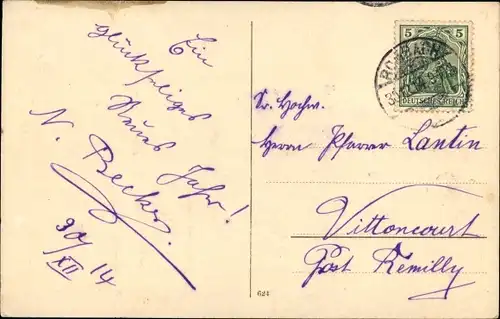 Ein
glückseliges
Neues Jahr!
N. Becker.
30/XII 14
5 5
DEUTSCHES REICH
Sr. Hochw.
Herrn Pfarrer Lantin
Vittoncourt
Post Remilly
621